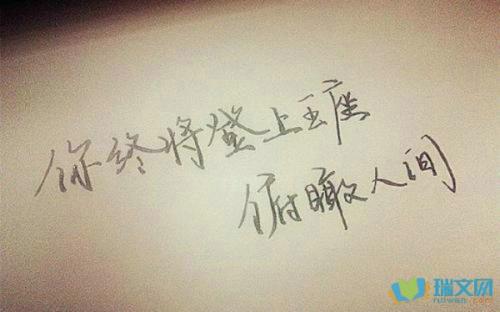 你终将登上王座
俯瞰人间
瑞文网
ruiwen.com